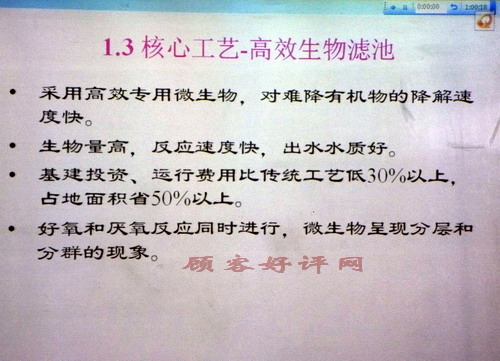 0:00:00
1:00:18
1.3 核心工艺-高效生物滤池
• 采用高效专用微生物，对难降有机物的降解速
度快。
• 生物量高，反应速度快，出水水质好。
• 基建投资、运行费用比传统工艺低30%以上，
占地面积省50%以上。
• 好氧和厌氧反应同时进行，微生物呈现分层和
分群的现象。
顾客好评网